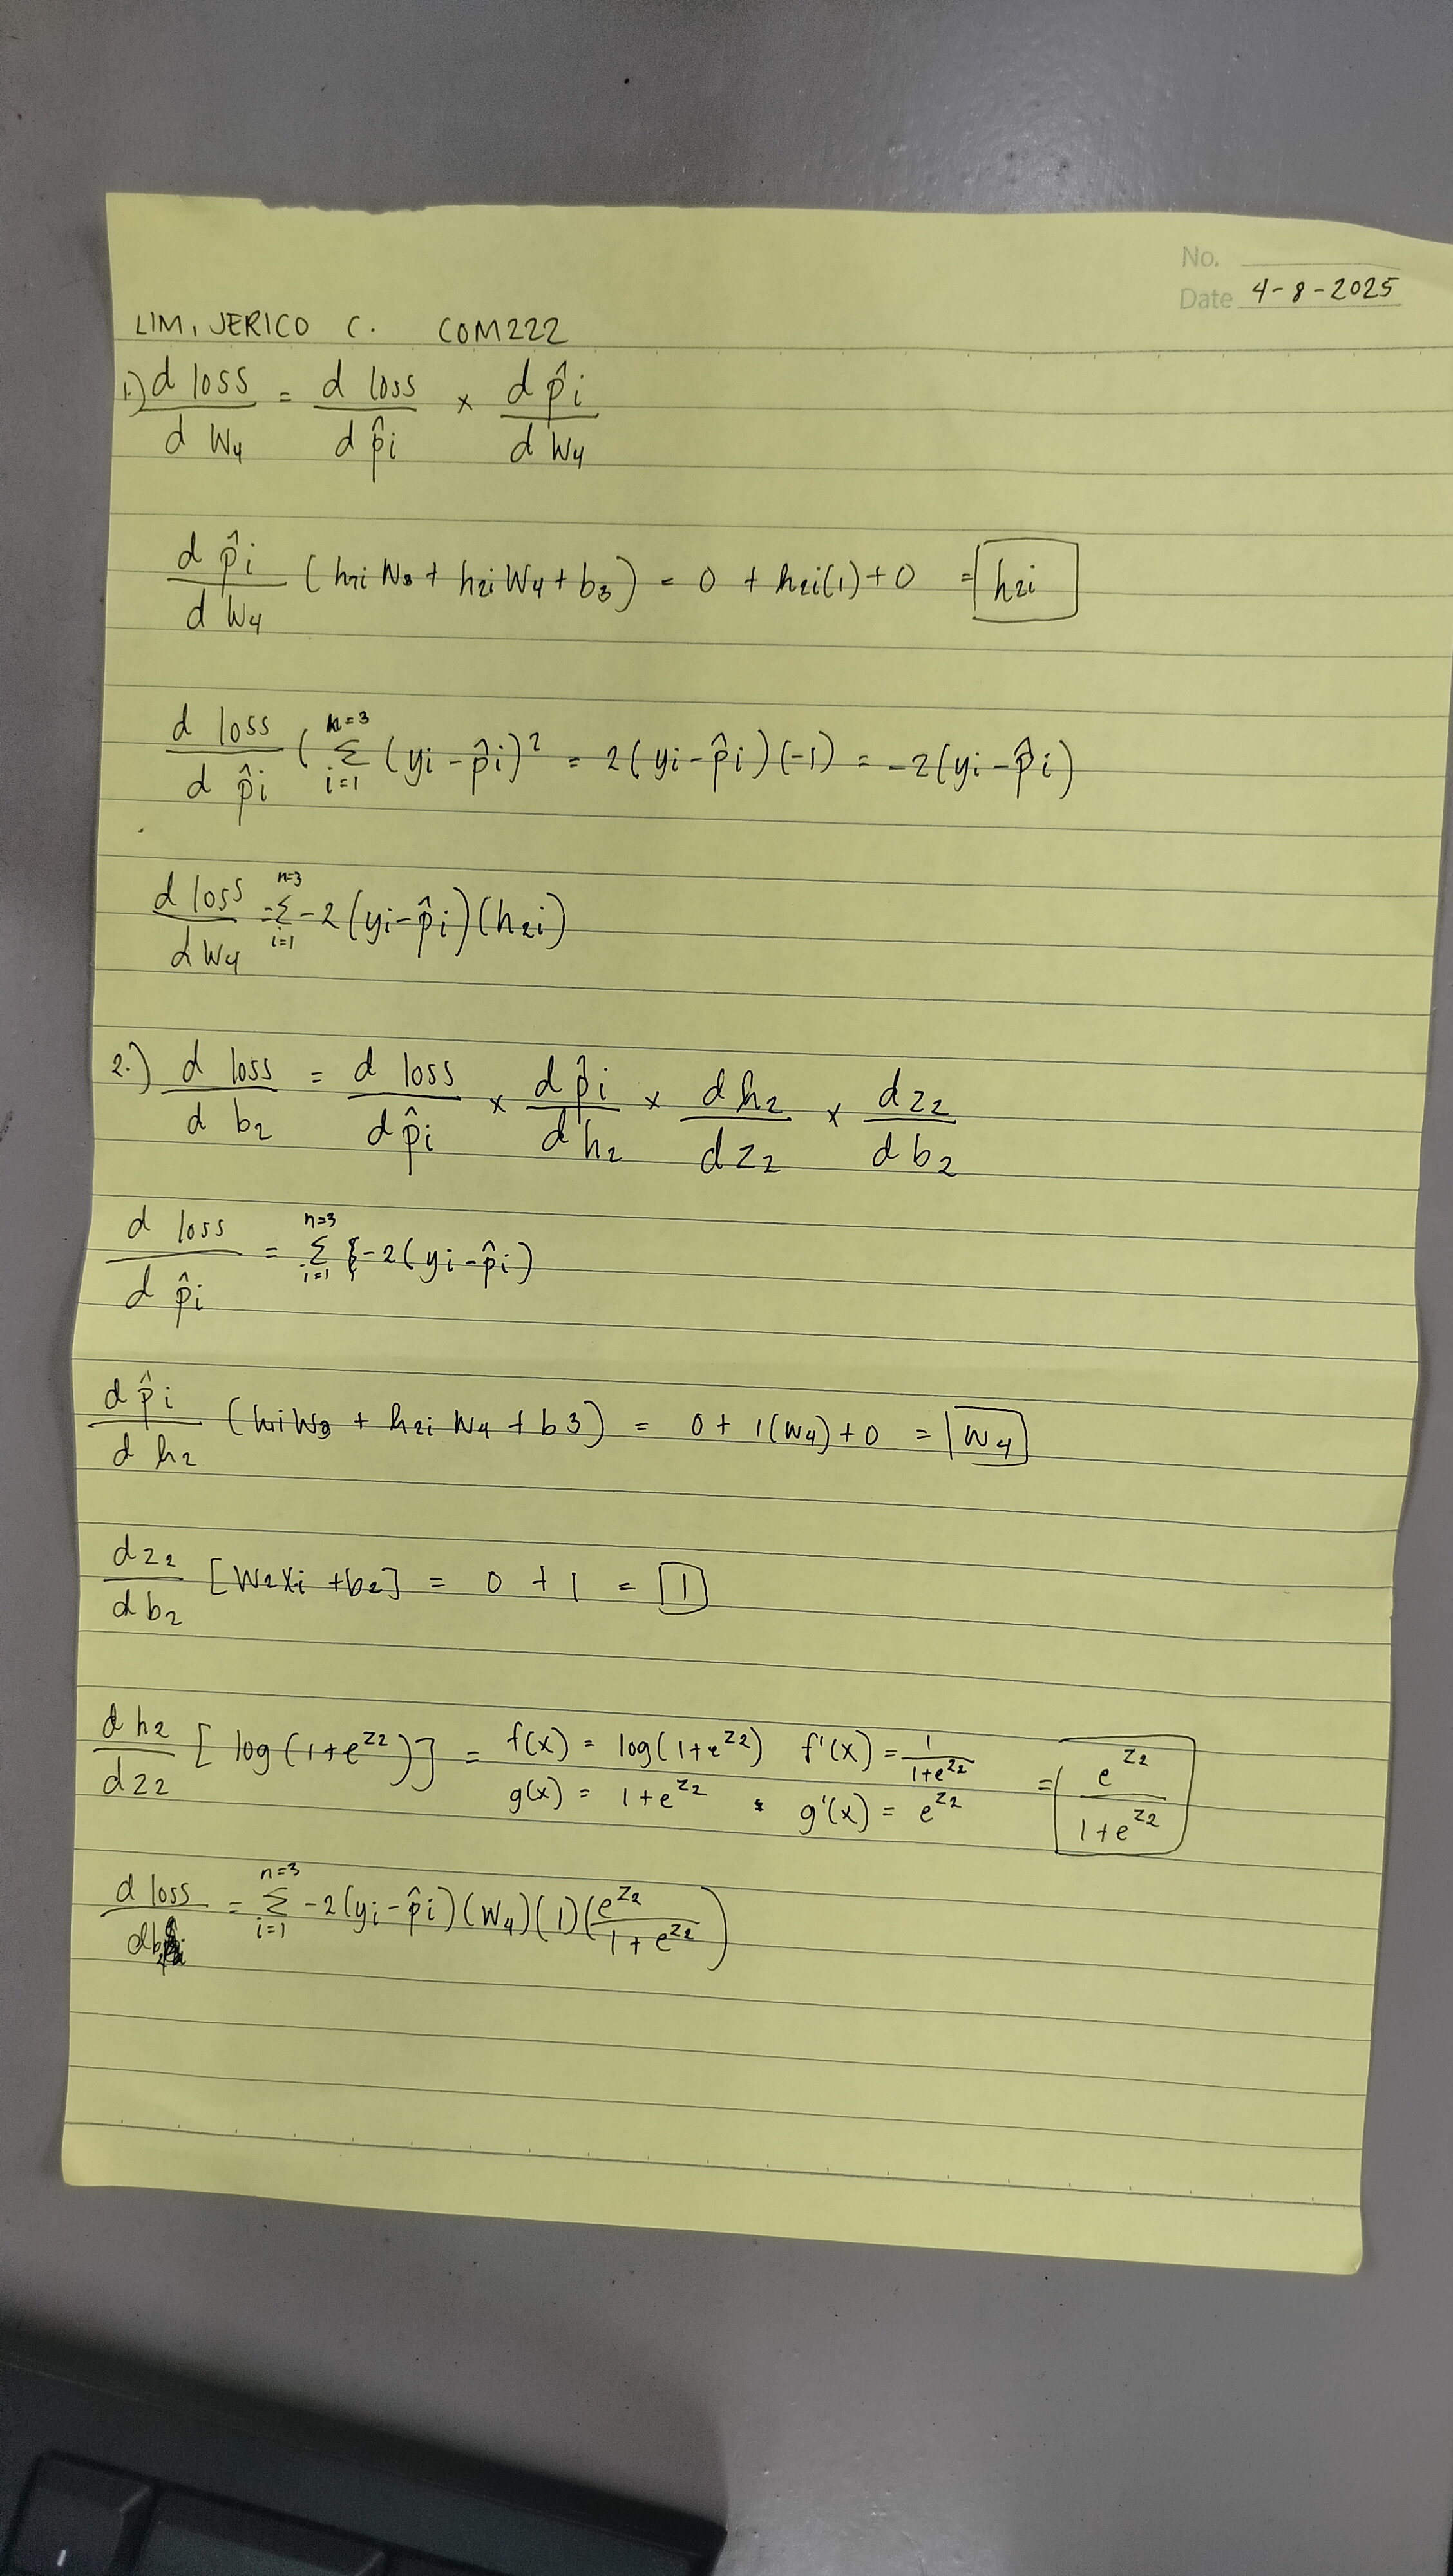 No.
Date 4-8-2025
LIM, JERICO C. COM222
1.) d loss / d W4 = d loss / d p̂i × d p̂i / d W4
d p̂i / d W4 (h1i W3 + h2i W4 + b3) = 0 + h2i(1) + 0 = h2i
d loss / d p̂i ( n=3 Σ i=1 (yi - p̂i)² = 2(yi - p̂i)(-1) = -2(yi - p̂i)
d loss / d W4 = n=3 Σ i=1 -2(yi - p̂i)(h2i)
2.) d loss / d b2 = d loss / d p̂i × d p̂i / d h2 × d h2 / d z2 × d z2 / d b2
d loss / d p̂i = n=3 Σ i=1 -2(yi - p̂i)
d p̂i / d h2 (h1i W3 + h2i W4 + b3) = 0 + 1(W4) + 0 = W4
d z2 / d b2 [W2Xi + b2] = 0 + 1 = 1
d h2 / d z2 [log(1+e^z2)] = f(x) = log(1+e^z2) f'(x) = 1 / 1+e^z2
g(x) = 1+e^z2 g'(x) = e^z2 = e^z2 / 1+e^z2
d loss / d b2 = n=3 Σ i=1 -2(yi - p̂i)(W4)(1)(e^z2 / 1+e^z2)